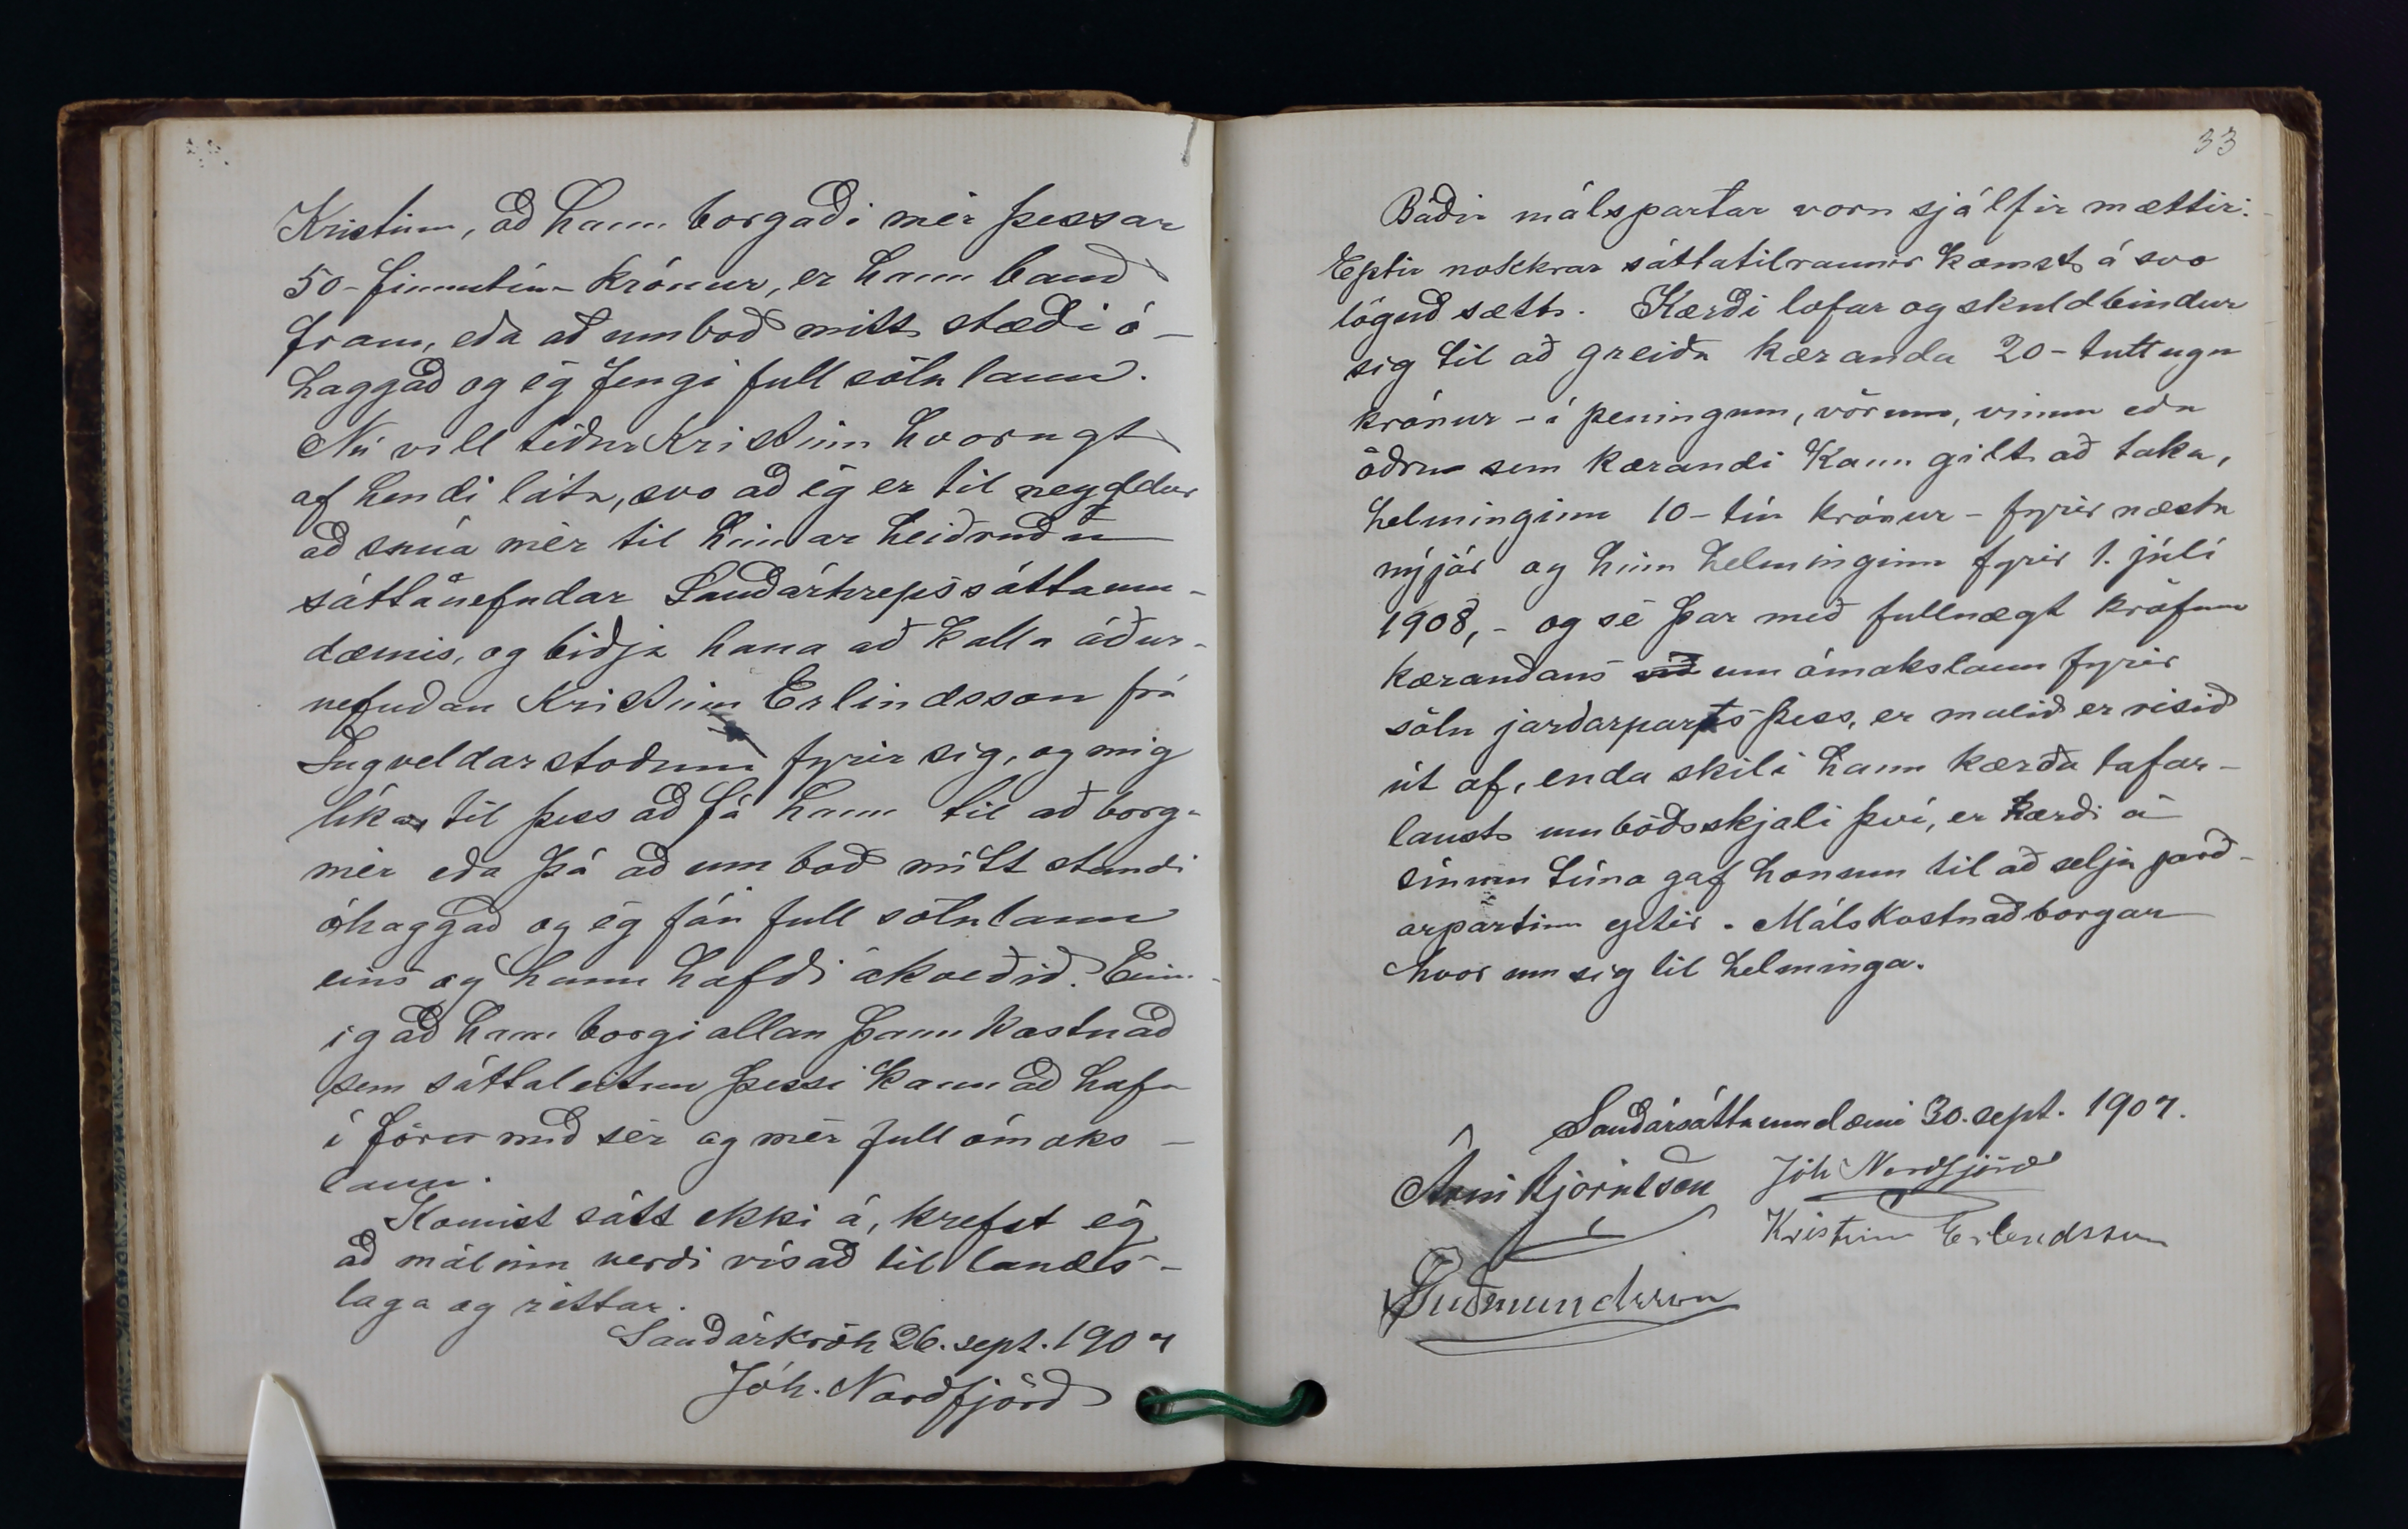 Kristinn, að hann borgaði mér þessar
50 - fimmtíu - krónur, er hann bauð
fram, eða að umboð mitt stæði ó-
haggað og ég fengi full sölulaun.
Nú vill tíður Kristinn hvorugt
af hendi láta, svo að ég er til neyddur
að snúa mér til hinnar heiðruðu
sáttanefndar Sauðárhrepssáttaum-
dæmis, og biðja hana að kalla áður-
nefndan Kristinn Erlindsson frá
Ingveldarstöðum fyrir sig, og mig
líka, til þess að fá hann til að borga
mér eða þá að umboð mitt standi
óhaggað og ég fái full sölulaun
eins og hann hafði ákveðið. Einn-
ig að hann borgi allan þann kostnað
sem sáttaleitun þessi kann að hafa
í för með sér og mér full ómaks-
laun.
Komist sátt ekki á, krefst ég
að málinu verði vísað til lands-
laga og réttar.
Sauðárkrók 26. sept. 1907
Jóh. Norðfjörð
33
Báðir málspartar voru sjálfir mættir.
Eptir nokkrar sáttatilraunir komst á svo
löguð sætt. Kærði lofar og skuldbindur
sig til að greiða kæranda 20 - tuttugu
krónur - í peningum, vörum, vinnu eða
öðru sem kærandi kann gilt að taka,
helminginn 10 - tíu krónur - fyrir næsta
nýjár og hinn helminginn fyrir 1. júlí
1908, - og sé þar með fullnægt kröfum
kærandans við um ómakslaun fyrir
sölu jarðarparts þess, er málið er risið
út af, enda skili hann kærða tafar-
laust umboðsskjali því, er kærði á
sínum tíma gaf honum til að selja jarð-
arpartinn eptir. Málskostnað borgar
hvor um sig til helminga.
Sauðársáttaumdæmi 30. sept. 1907.
Árni Björnsson Jóh Norðfjörð
Kristinn Erlendsson
Guðmundsson